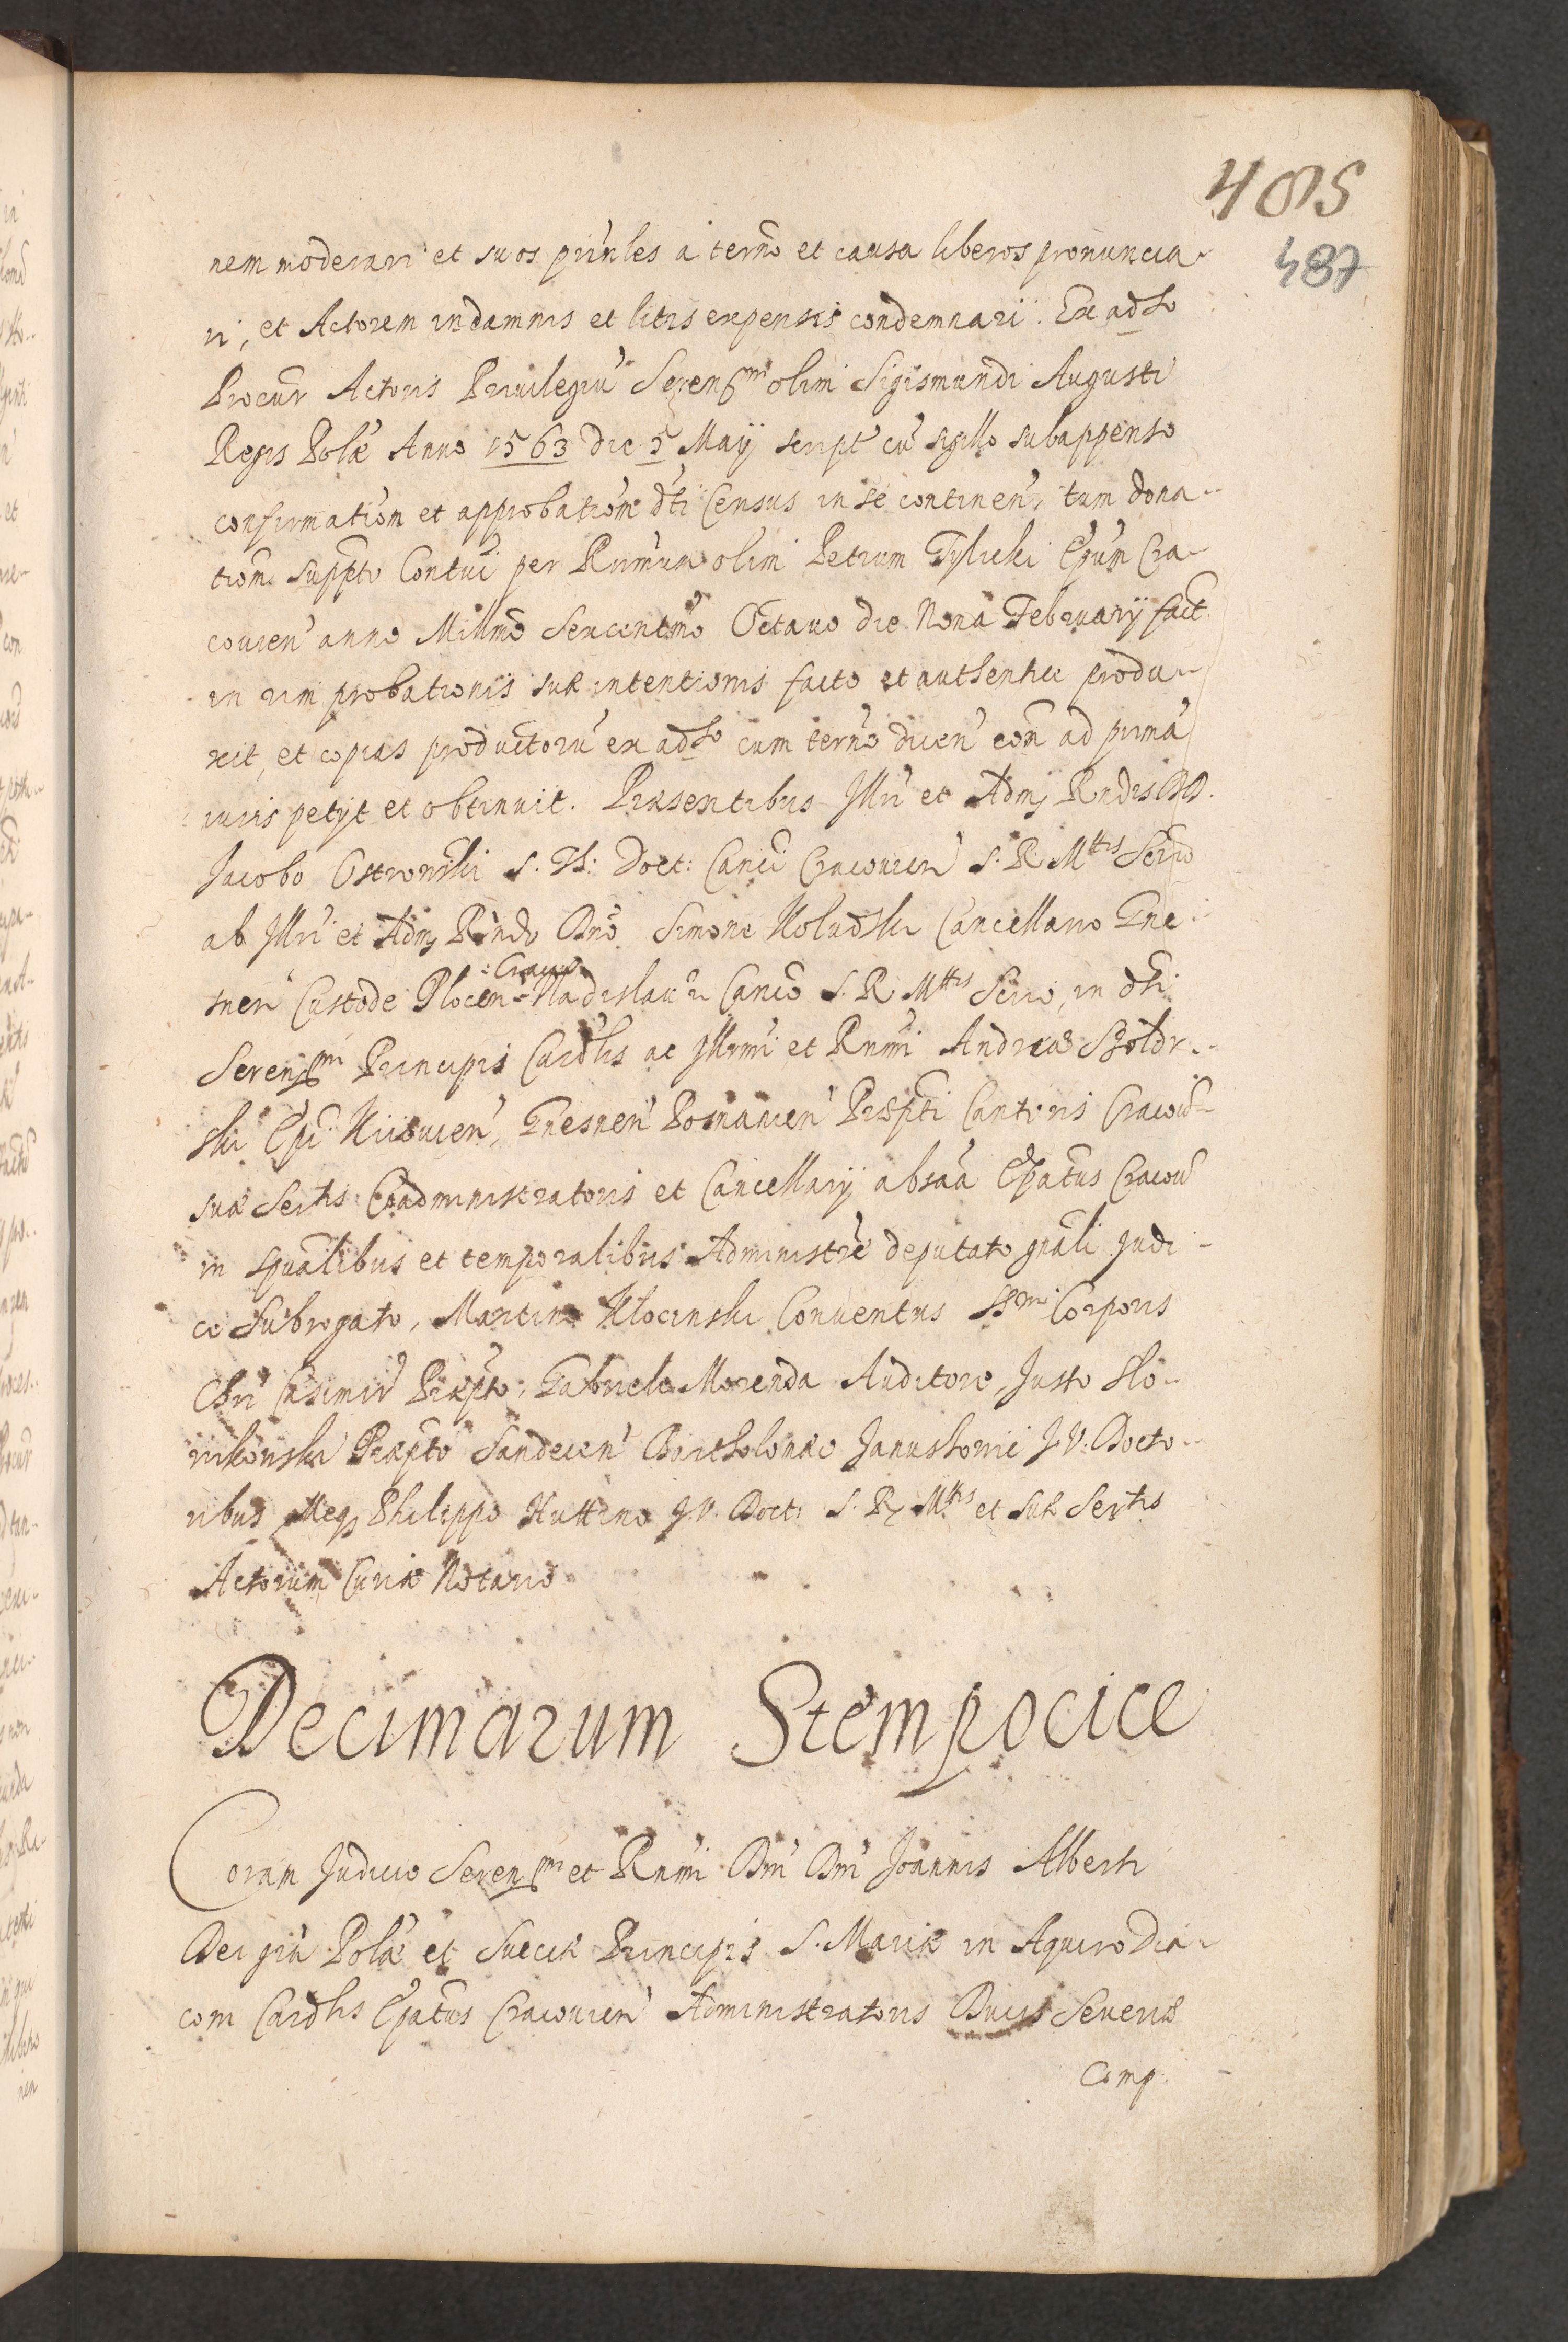 485
487
nem moderari et suos prinles a termo et causa liberos pronuncia-
ri, et Actorem in damnis et litis expensis condemnari. Ex adso
Procur Actoris Priuilegiu Serenssmi olim Sigismundi Augusti
Regis Polae Anno 1563 die 5 Maij script cu sigillo subappenso
confirmationem et approbationem dti Census in se continen, tum dona-
tiom suppto Contui per Rnmum olim Petrum Tylicki Epum Cra-
couien anno Millmo Sexcentmo Octauo die Nona February fact
in uim probationis suae intentionis facto et authentice produ-
xit, et copias productoru ex adso cum termo dicen con ad prima
iuris petijt et obtinuit. Praesentibus Illri et Admj Rndis DD.
Jacobo Ostrowski S. Th: Doct: Canci Cracouien S. R Mttis Serio
ab Illri et Admj Rndo Dno Simone Koludski Cancellario Gne
snen Custode Plocen Cracou Wladislauien Canco S. R Mttis Secrio, in dti
Serenssmi Principis Cardlis ac Illrmi et Rnmi Andreae Szoldr-
ski Epi Kiiouien, Gnesnen Posnanien Praepti Cantoris Cracou
suae Sertis Coadministratoris et Cancellarij absa Epatus Cracou
in spualibus et temporalibus Administre deputato gnali Judi-
ce Subrogato, Martino Klocinski Conuentus SSmi Corporis
Chri Casimir Praepto, Gabriele Morenda Auditore, Justo Slo-
wikowski Praepto Sandecen Bartholomaeo Januszowic J. V. Docto-
ribus Meqz Philippo Huttino J. V. Doct: S. R. Mttis et suae Sertis
Actorum Curiae Notario
Decimarum Stempocice
Coram Judicio Serenssmi et Rnmi Dni Dni Joannis Alberti
Dei gra Polae et Sueciae Principis S. Mariae in Aquiro Dia-
coni Cardlis Epatus Cracouien Administratoris Ducis Seueriae
Comp.